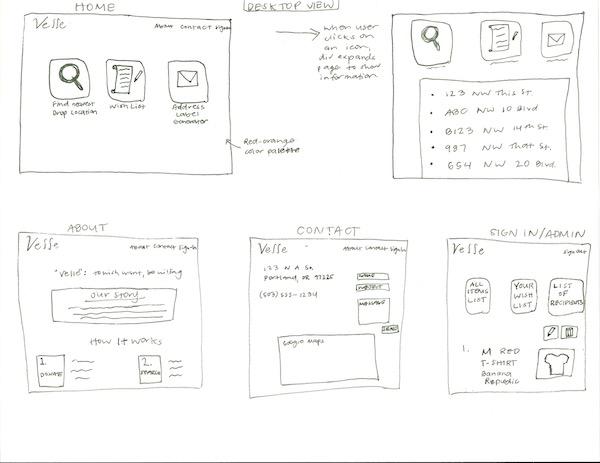 HOME
Velle
About Contact Sign in
Find nearest
Drop Location
Wish List
Address
Label
Generator
Red-orange
color palette
DESKTOP VIEW
when user
clicks on
an icon,
div expands
page to show
information
• 123 NW This St.
• ABC NW 10 Blvd
• B123 NW 14th St.
• 987 NW That St.
• 654 NW 20 Blvd.
ABOUT
Velle
About Contact Sign In
"Velle": to wish, want, be willing
our story
How It Works
1.
DONATE
2.
CONTACT
Velle
About Contact Sign In
123 N A St.
Portland, OR 97225
(503) 555-1234
NAME
SUBJECT
MESSAGE
SEND
Google Maps
SIGN IN/ADMIN
Velle
Sign out
ALL
ITEMS
LIST
YOUR
WISH
LIST
LIST
OF
RECIPIENTS
1. M RED
T-SHIRT
Banana
Republic